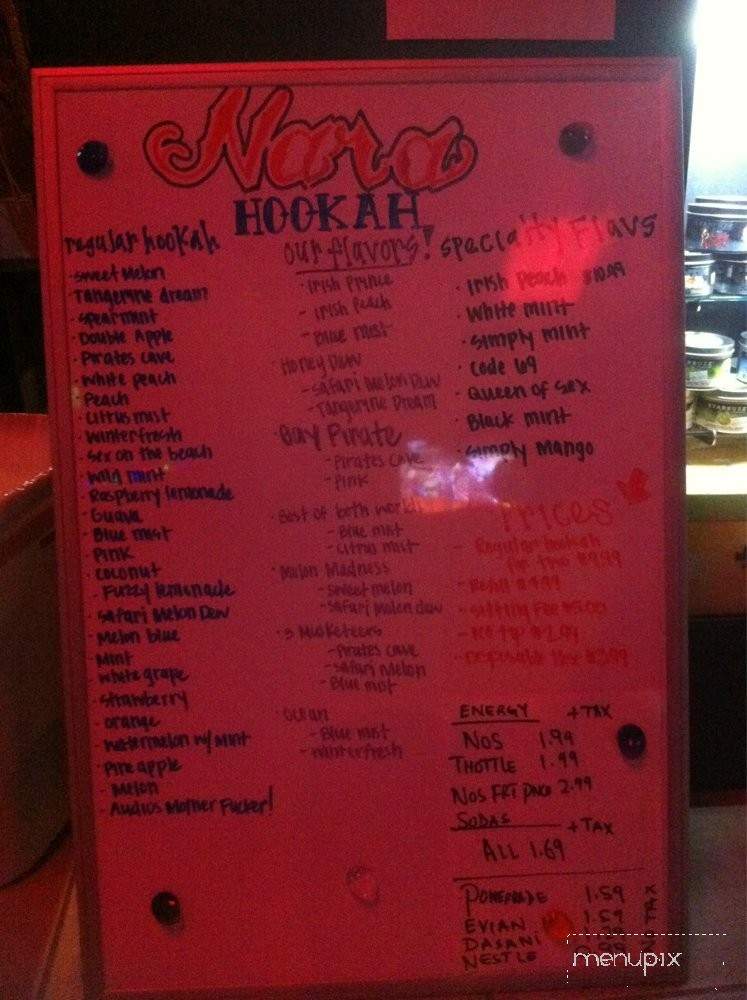 Nara
HOOKAH
regular hookah
· Sweet Melon
· Tangerine dream
· Spearmint
· Double Apple
· Pirates cave
· White peach
· Peach
· Citrus mist
· Winterfresh
· Sex on the beach
· Wild mint
· Raspberry lemonade
· Guava
· Blue mist
· Pink
· Coconut
- Fuzzy lemonade
· Safari Melon Dew
· Melon blue
· Mint
· White grape
· Strawberry
- orange
· Watermelon w/ Mint
· Pineapple
- Melon
- Audios Mother Fucker!
our flavors!
· Irish Prince
- Irish Peach
- Blue mist
· Honey Dew
- Safari Melon Dew
- Tangerine Dream
· Gay Pirate
- Pirates Cave
- Pink
· Best of both world
- Blue mist
- Citrus mist
· Melon Madness
- Sweet melon
- Safari Melon dew
· 3 Musketeers
- Pirates Cave
- Safari Melon
- Blue mist
· Ocean
- Blue mist
- Winterfresh
Specialty Flavs
· Irish Peach $10.99
· White mint
· Simply mint
· Code 69
· Queen of Sex
· Black mint
· Simply Mango
Prices
- Regular hookah
for two $9.99
- Refill
- Sitting Fee $5.00
- $2.99
- Disposable Hose $3.99
ENERGY + TAX
NOS 1.99
THOTTLE 1.99
NOS 2.99
SODAS + TAX
ALL 1.69
POWERADE 1.59
EVIAN 1.59
DASANI
NESTLE
NO TAX
STARBUZZ
menupix